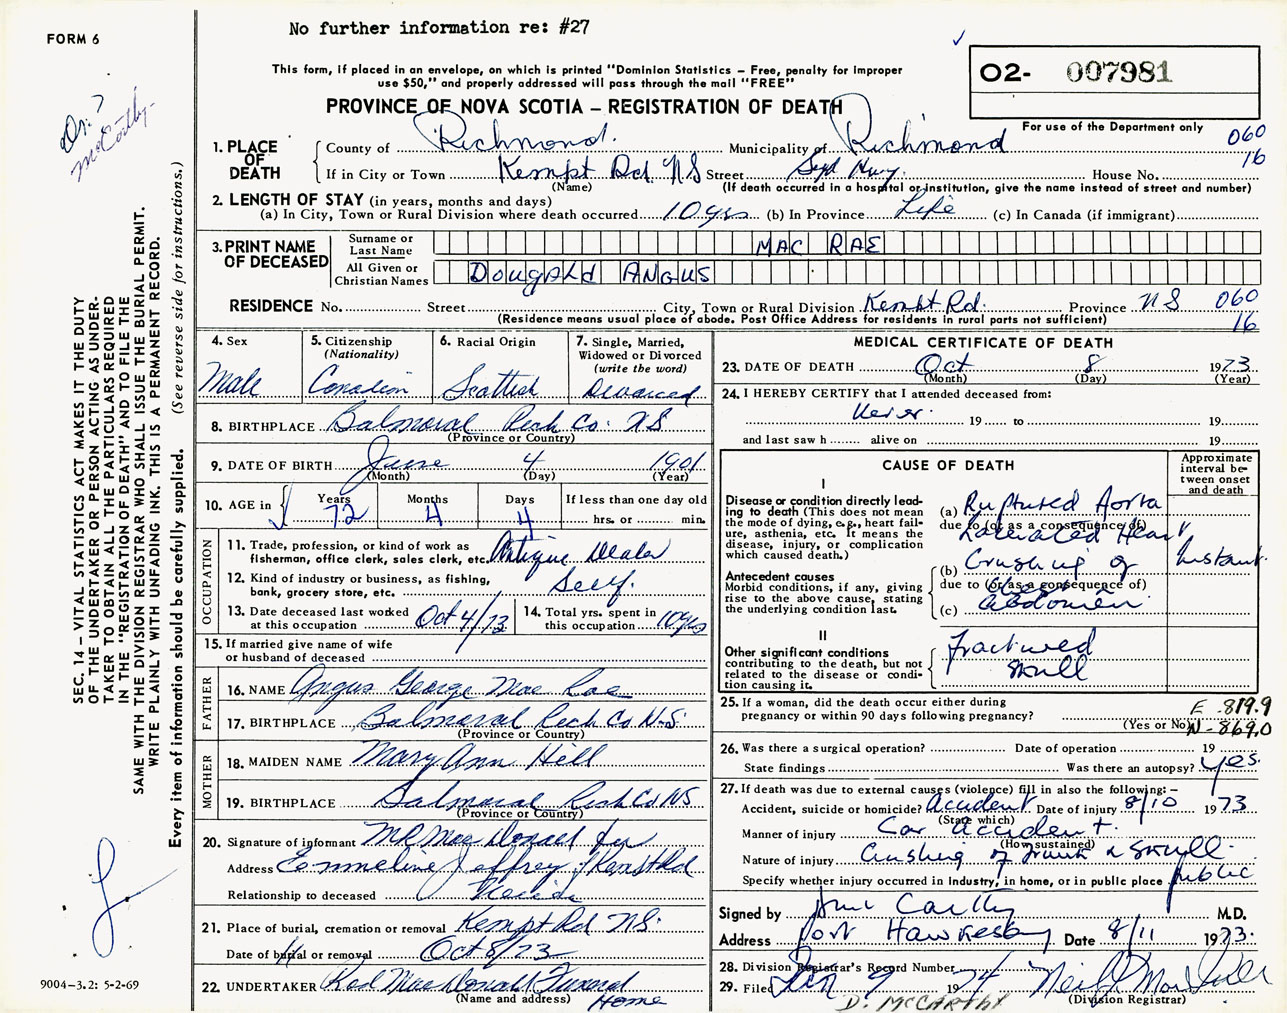 No further information re: #27
FORM 6
This form, if placed in an envelope, on which is printed "Dominion Statistics – Free, penalty for improper
use $50," and properly addressed will pass through the mail "FREE"
O2- 007981
PROVINCE OF NOVA SCOTIA – REGISTRATION OF DEATH
For use of the Department only
060
16
Dr. ?
McCarthy
1. PLACE OF DEATH
County of Richmond Municipality of Richmond
If in City or Town Kempt Rd. NS Street Syd Hwy. House No.
(Name) (If death occurred in a hospital or institution, give the name instead of street and number)
2. LENGTH OF STAY (in years, months and days)
(a) In City, Town or Rural Division where death occurred 10 yrs (b) In Province Life (c) In Canada (if immigrant)
3. PRINT NAME OF DECEASED
Surname or Last Name MAC RAE
All Given or Christian Names DOUGALD ANGUS
RESIDENCE No. Street City, Town or Rural Division Kempt Rd. Province NS 060
(Residence means usual place of abode. Post Office Address for residents in rural parts not sufficient) 16
SEC. 14 – VITAL STATISTICS ACT MAKES IT THE DUTY
OF THE UNDERTAKER OR PERSON ACTING AS UNDER-
TAKER TO OBTAIN ALL THE PARTICULARS REQUIRED
IN THE "REGISTRATION OF DEATH" AND TO FILE THE
SAME WITH THE DIVISION REGISTRAR WHO SHALL ISSUE THE BURIAL PERMIT.
WRITE PLAINLY WITH UNFADING INK. THIS IS A PERMANENT RECORD.
Every item of information should be carefully supplied. (See reverse side for instructions.)
4. Sex
Male
5. Citizenship
(Nationality)
Canadian
6. Racial Origin
Scottish
7. Single, Married,
Widowed or Divorced
(write the word)
Divorced
8. BIRTHPLACE Balmoral Rich Co. NS
(Province or Country)
9. DATE OF BIRTH June 4 1901
(Month) (Day) (Year)
10. AGE in Years 72 Months 4 Days 4 If less than one day old
hrs. or min.
OCCUPATION
11. Trade, profession, or kind of work as
fisherman, office clerk, sales clerk, etc. Antique Dealer
12. Kind of industry or business, as fishing,
bank, grocery store, etc. Self.
13. Date deceased last worked
at this occupation Oct 4/73
14. Total yrs. spent in
this occupation 10 yrs
15. If married give name of wife
or husband of deceased
FATHER
16. NAME Angus George Mac Rae
17. BIRTHPLACE Balmoral Rich Co N.S.
(Province or Country)
MOTHER
18. MAIDEN NAME Mary Ann Hill
19. BIRTHPLACE Balmoral Rich Co NS
(Province or Country)
20. Signature of informant MacDonald for
Address Emmeline Jeffrey, Kempt Rd
Relationship to deceased Neice
21. Place of burial, cremation or removal Kempt Rd NS.
Date of burial or removal Oct 8/73
22. UNDERTAKER Rod MacDonald Funeral
(Name and address) Home
9004-3.2: 5-2-69
MEDICAL CERTIFICATE OF DEATH
23. DATE OF DEATH Oct 8 1973
(Month) (Day) (Year)
24. I HEREBY CERTIFY that I attended deceased from:
Never. 19 to 19
and last saw h alive on 19
CAUSE OF DEATH
Approximate
interval be-
tween onset
and death
I
Disease or condition directly lead-
ing to death (This does not mean
the mode of dying, e.g., heart fail-
ure, asthenia, etc. It means the
disease, injury, or complication
which caused death.)
(a) Ruptured Aorta
due to (or as a consequence of)
Lacerated Heart
Antecedent causes
Morbid conditions, if any, giving
rise to the above cause, stating
the underlying condition last.
(b) Crushing of Instant.
due to (or as a consequence of)
Chest
(c) abdomen
II
Other significant conditions
contributing to the death, but not
related to the disease or condi-
tion causing it.
fractured
skull
25. If a woman, did the death occur either during
pregnancy or within 90 days following pregnancy?
(Yes or No)
E-819.9
N-869.0
26. Was there a surgical operation? Date of operation 19
State findings Was there an autopsy? yes.
27. If death was due to external causes (violence) fill in also the following: –
Accident, suicide or homicide? Accident Date of injury 8/10 1973
(State which)
Manner of injury Car accident.
(How sustained)
Nature of injury Crushing of trunk & skull.
Specify whether injury occurred in industry, in home, or in public place public
Signed by Carthy M.D.
Address Port Hawkesbury Date 8/11 1973.
28. Division Registrar's Record Number
29. Filed Jan 9 1974
(Division Registrar)
D. MCCARTHY